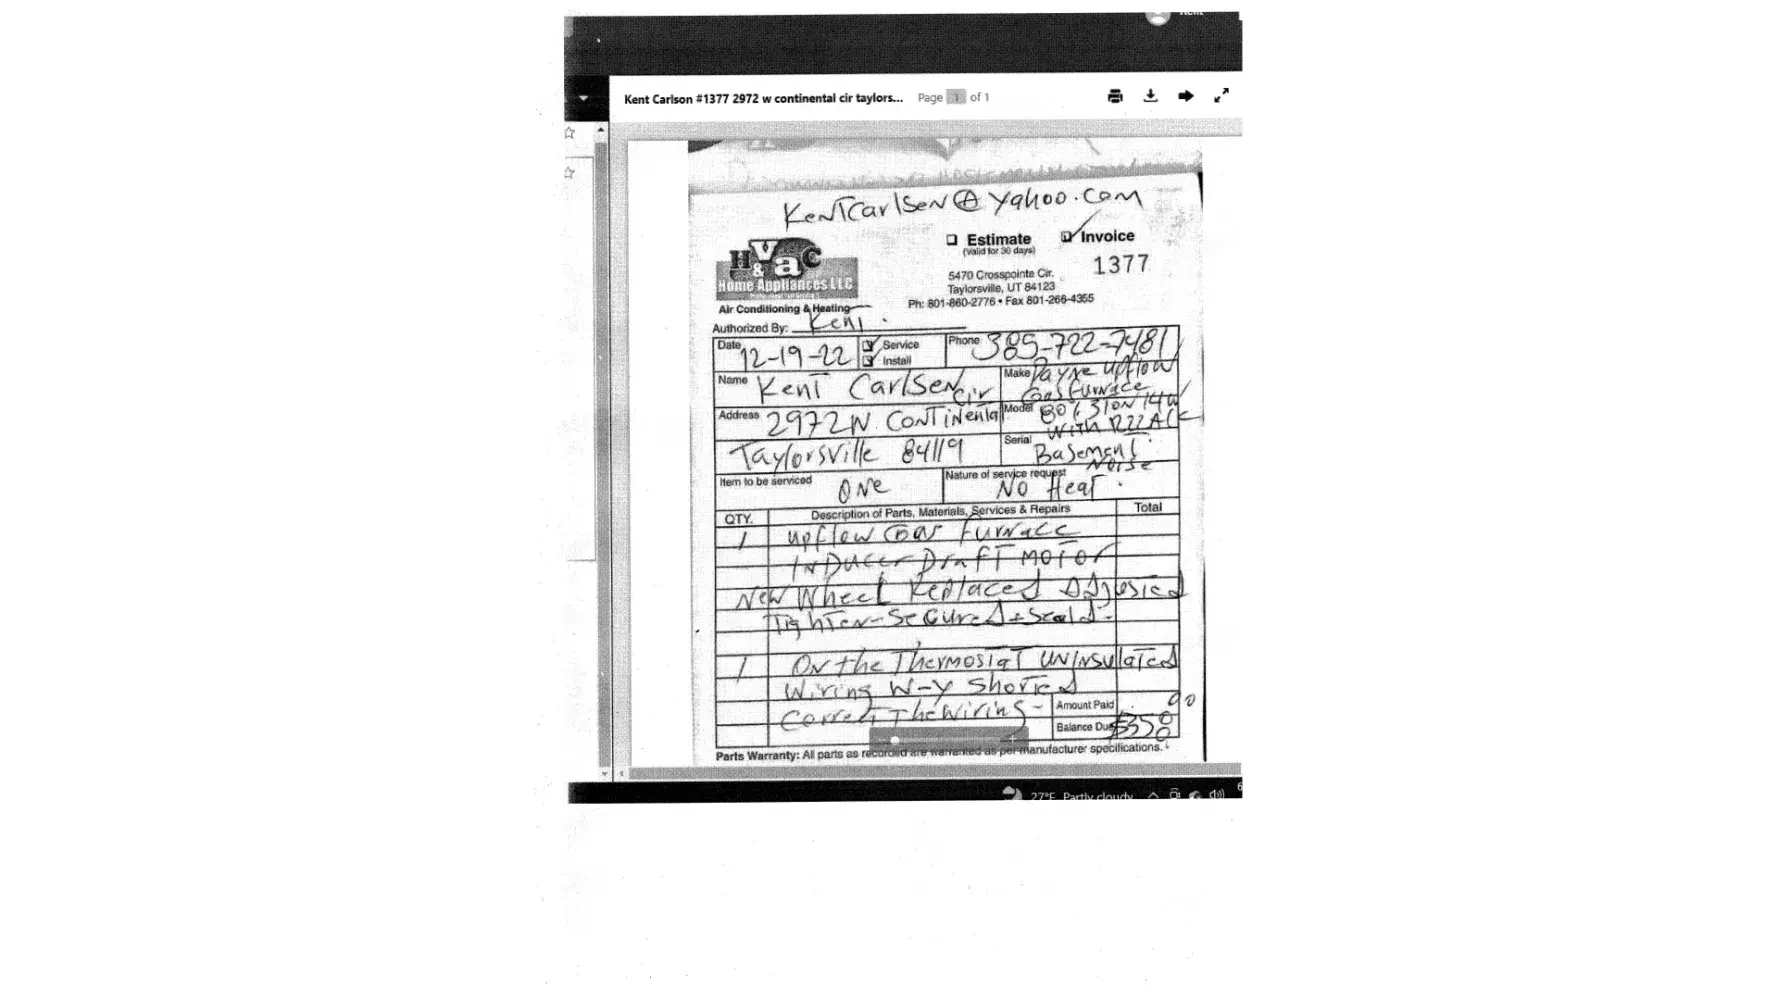 Kent Carlson #1377 2972 w continental cir taylors... Page 1 of 1
KentCarlsen@yahoo.com
Estimate
(Valid for 30 days)
Invoice
1377
HVAC
&
Home Appliances LLC
Air Conditioning & Heating
5470 Crosspointe Cir.
Taylorsville, UT 84123
Ph: 801-860-2776 • Fax 801-266-4355
Authorized By: Kent
Date 12-19-22
Service
Install
Phone 385-722-7481
Name Kent Carlsen
Make Payne upflow
Gas Furnace
Address 2972 W Continental
Cir
Model 80% 3Ton 14
With R22 A/C
Taylorsville 84119
Serial Basement
Item to be serviced One
Nature of service request Noise
No Heat.
QTY. Description of Parts, Materials, Services & Repairs Total
1 upflow Gas Furnace
Inducer Draft Motor
New Wheel Replaced Adjusted
Tighten-Secured + Seald-
1 On the Thermostat uninsulated
Wiring W-Y Shorted
Correct The Wiring-
Amount Paid
Balance Due $350 00
Parts Warranty: All parts as recorded are warranted as per manufacturer specifications.
27°F Partly cloudy